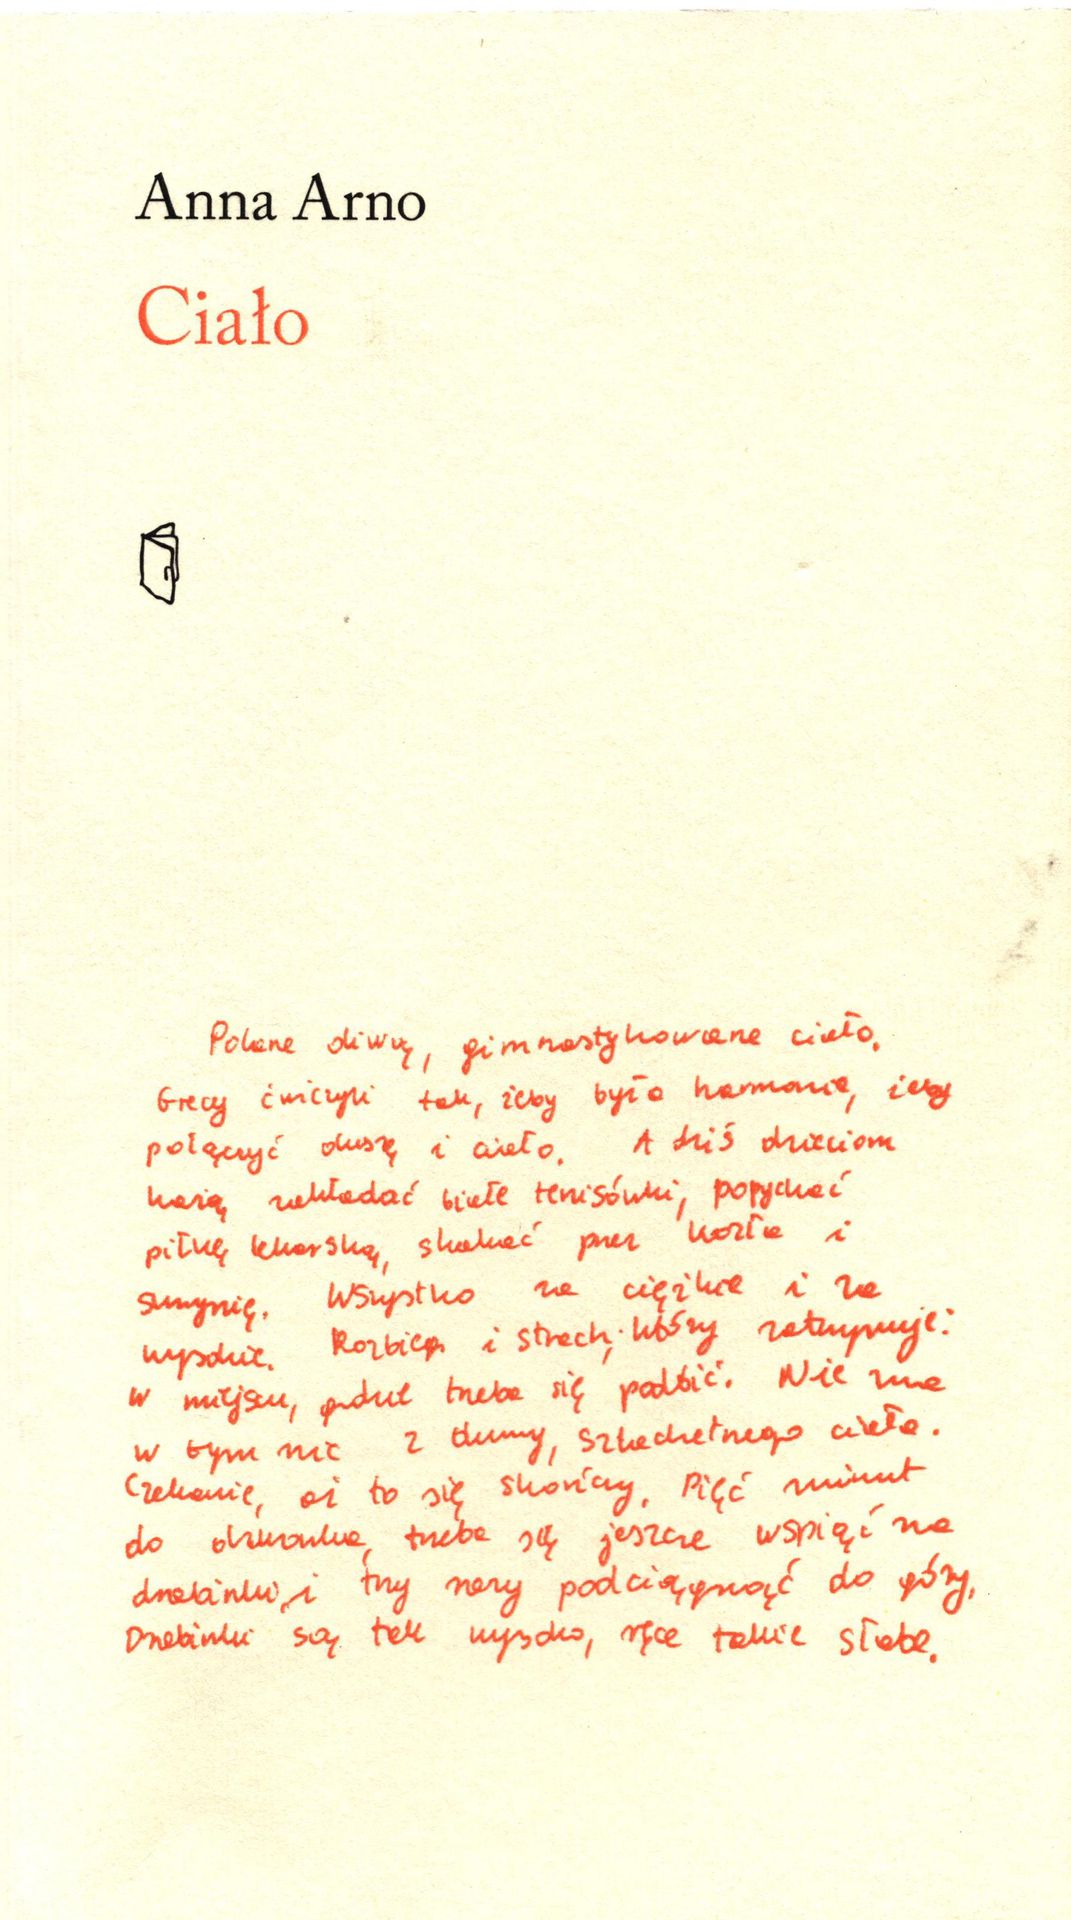 Anna Arno
Ciało
Polane oliwą, gimnastykowane ciało.
Grecy ćwiczyli tak, żeby była harmonia, żeby
połączyć duszę i ciało. A dziś dzieciom
każą zakładać białe tenisówki, popychać
piłkę lekarską, skakać przez kozła i
skrzynię. Wszystko za ciężkie i za
wysokie. Rozbieg i strach, który zatrzymuje:
w miejscu, gdzie trzeba się podbić. Nie ma
w tym nic z dumy, szlachetnego ciała.
Czekanie, aż to się skończy. Pięć minut
do dzwonka, trzeba się jeszcze wspiąć na
drabinki, i trzy razy podciągnąć do góry.
Drabinki są tak wysoko, ręce takie słabe.